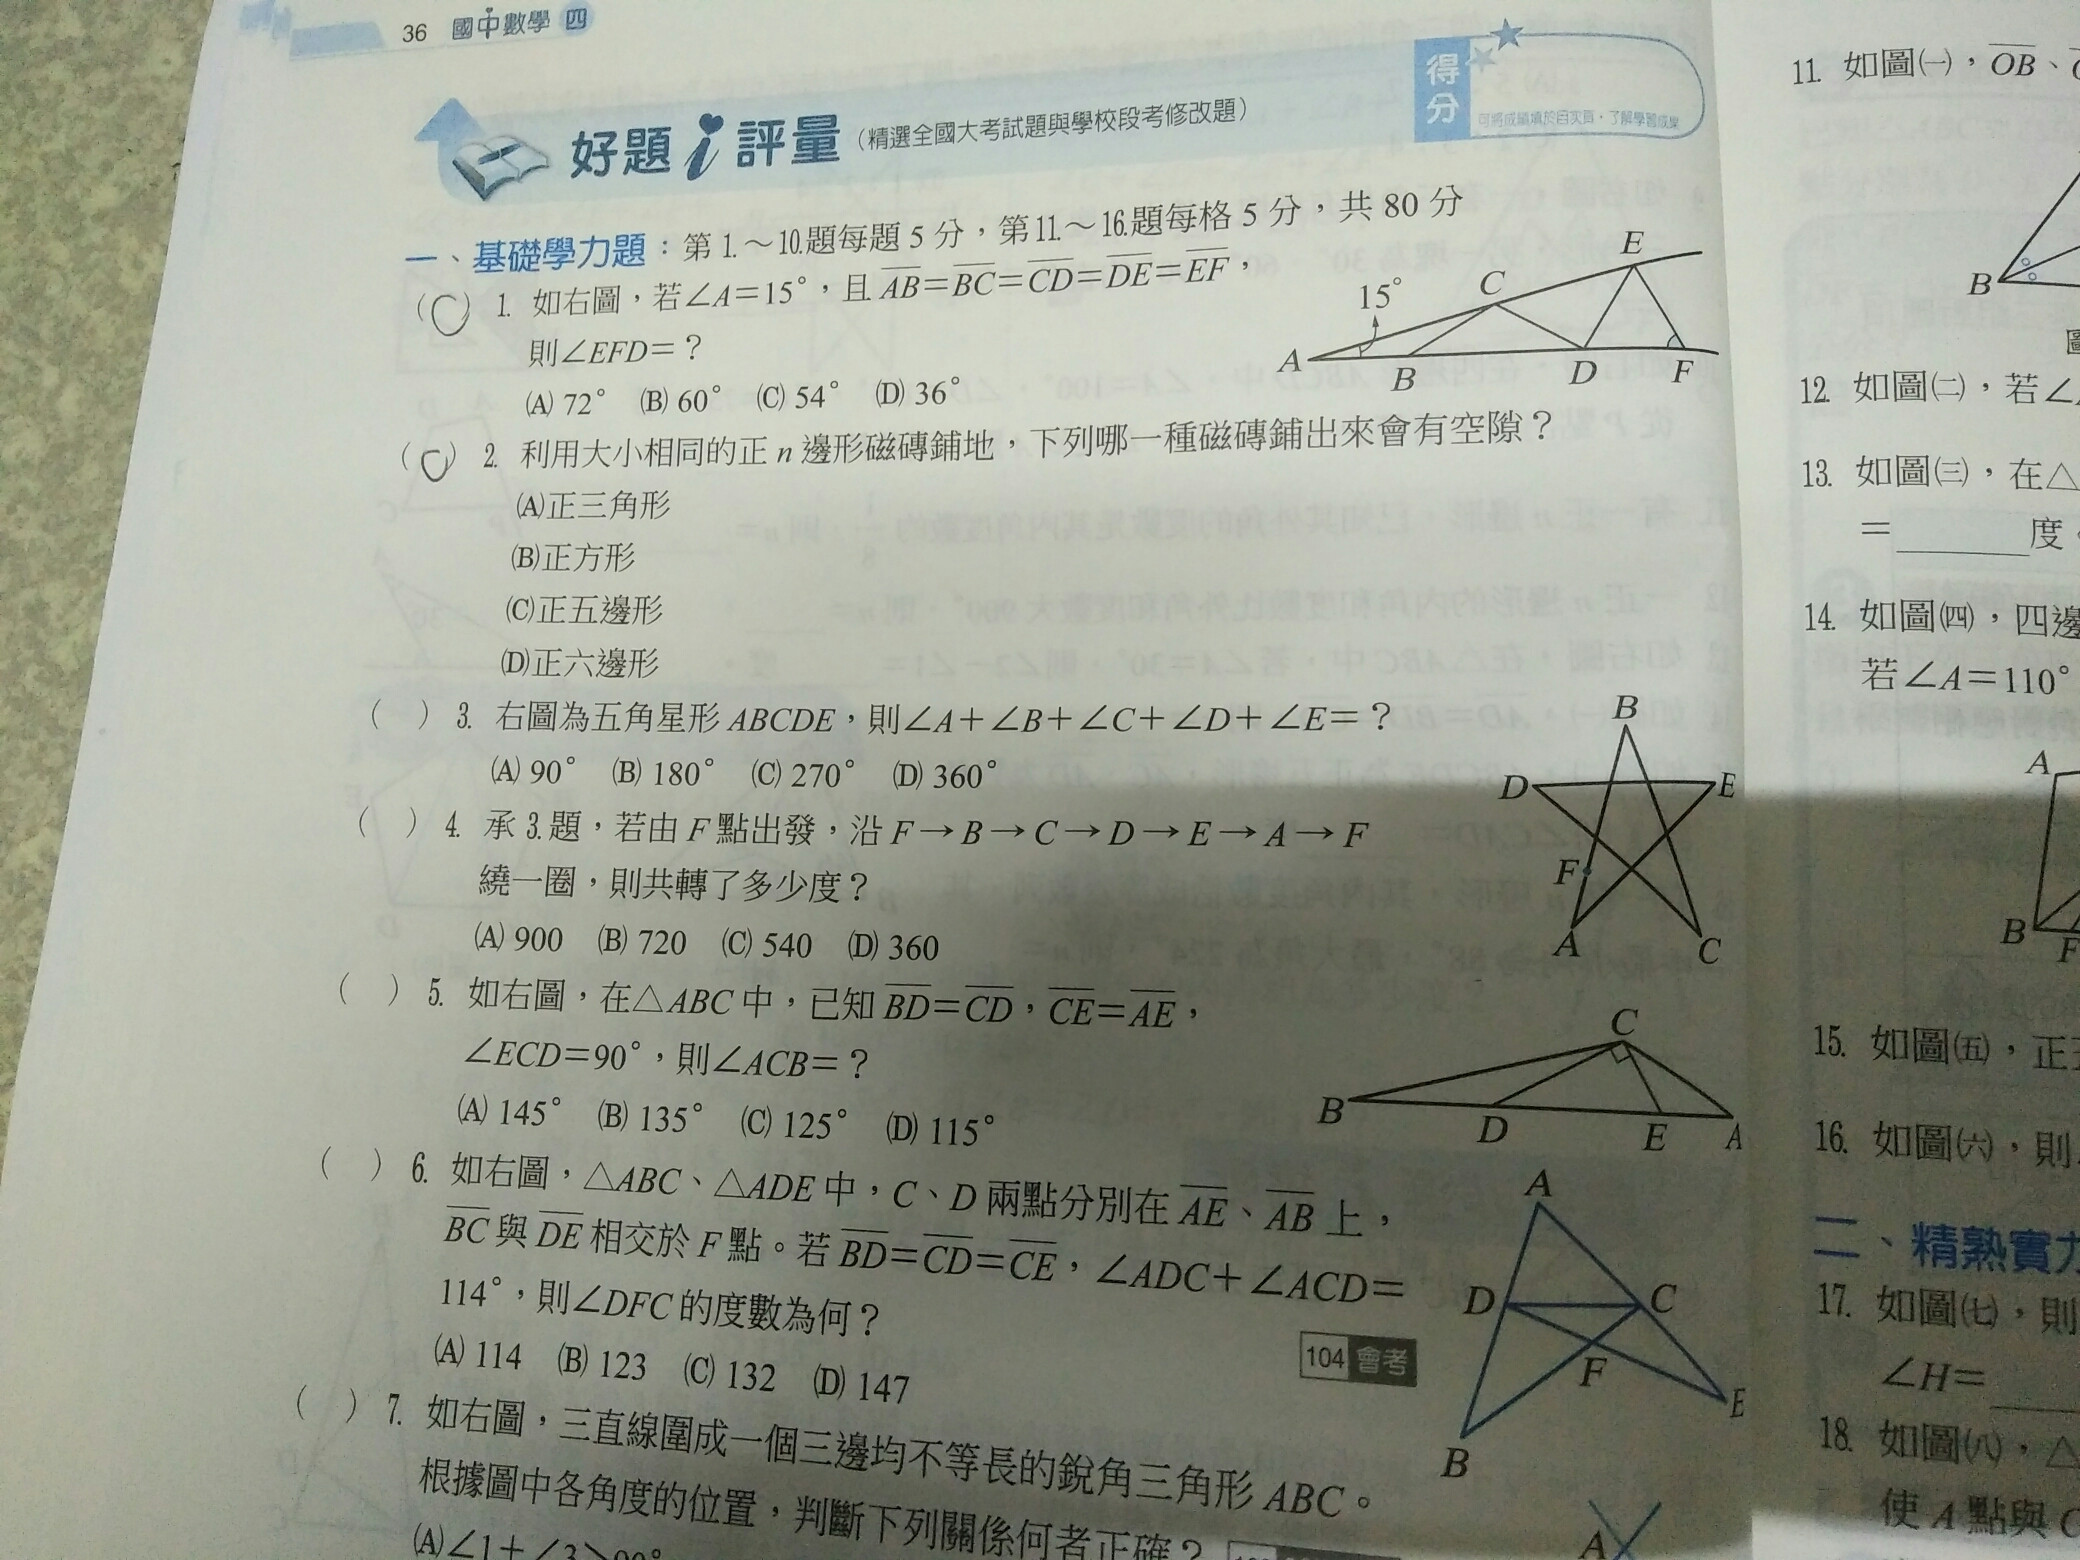 36 國中數學 四
好題i評量(精選全國大考試題與學校段考修改題)
得分
可將成績填於自次頁,了解學習成果
一、基礎學力題:第1.~10.題每題5分,第11.~16.題每格5分,共80分
(C) 1. 如右圖,若∠A=15°,且AB=BC=CD=DE=EF,
則∠EFD=?
(A) 72° (B) 60° (C) 54° (D) 36°
15°
A B C D E F
(C) 2. 利用大小相同的正n邊形磁磚鋪地,下列哪一種磁磚鋪出來會有空隙?
(A)正三角形
(B)正方形
(C)正五邊形
(D)正六邊形
( ) 3. 右圖為五角星形ABCDE,則∠A+∠B+∠C+∠D+∠E=?
(A) 90° (B) 180° (C) 270° (D) 360°
B
D E
F
A C
( ) 4. 承3.題,若由F點出發,沿F→B→C→D→E→A→F
繞一圈,則共轉了多少度?
(A) 900 (B) 720 (C) 540 (D) 360
( ) 5. 如右圖,在△ABC中,已知BD=CD,CE=AE,
∠ECD=90°,則∠ACB=?
(A) 145° (B) 135° (C) 125° (D) 115°
C
B D E A
( ) 6. 如右圖,△ABC、△ADE中,C、D兩點分別在AE、AB上,
BC與DE相交於F點。若BD=CD=CE,∠ADC+∠ACD=
114°,則∠DFC的度數為何?
(A) 114 (B) 123 (C) 132 (D) 147
104 會考
A
D C
F
E
B
( ) 7. 如右圖,三直線圍成一個三邊均不等長的銳角三角形ABC。
根據圖中各角度的位置,判斷下列關係何者正確?
(A)∠1+∠3>90°
A
11. 如圖(一),OB、
B
12. 如圖(二),若∠
13. 如圖(三),在△
=______度。
14. 如圖(四),四邊
若∠A=110°
A
B F
15. 如圖(五),正五
16. 如圖(六),則
二、精熟實力
17. 如圖(七),則
∠H=
18. 如圖(八),△
使A點與C